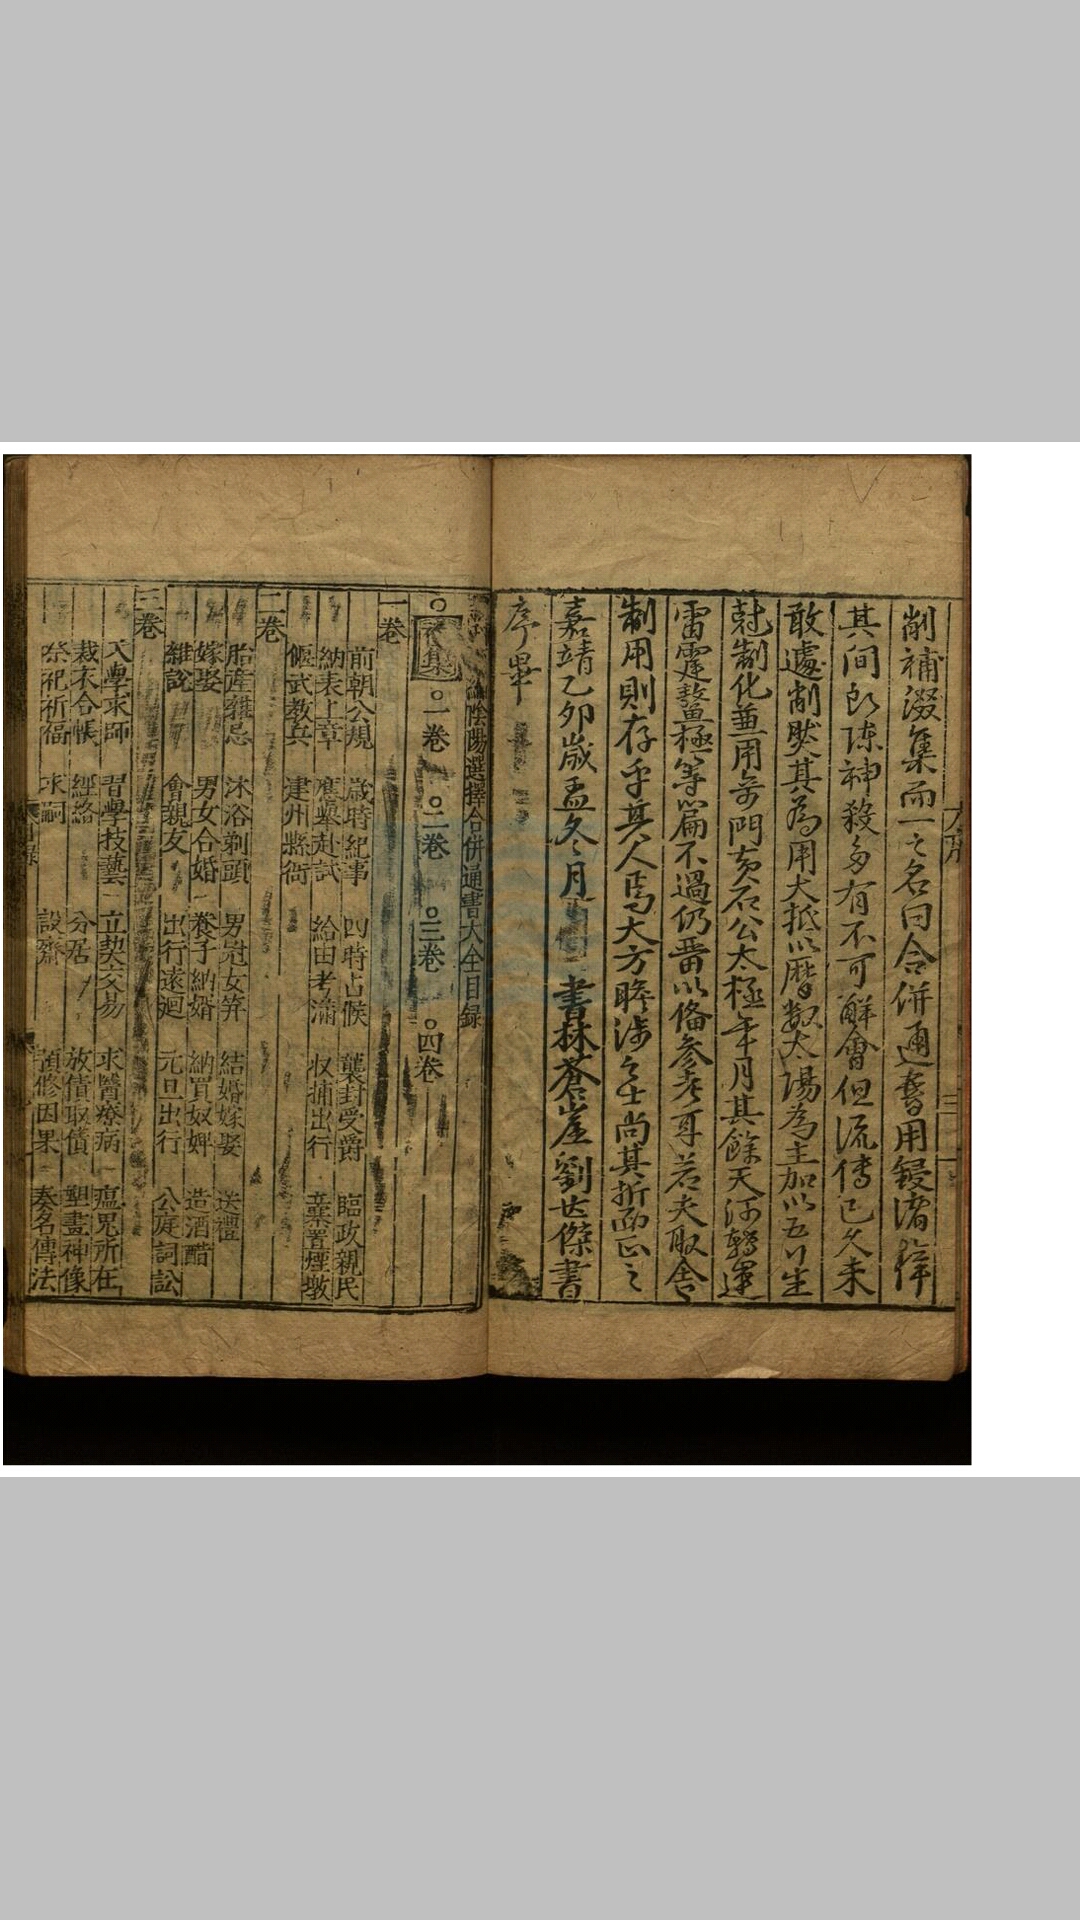 削補湿集而一之名曰合併通書用鋟諸梓
其間所陳神殺多有不可解會但流傳已久未
敢遽削肰其為用大抵以曆數太陽為主加以五行生
尅制化兼用奇門黄石公太極年月其餘天河轉運
雷霆整極等篇不過仍舊以俻參考耳若夫取舍
制用則存乎其人焉大方瞻涉之士尚其折而正之
嘉靖乙夘歲孟冬月 書林蒼崖劉世傑書
序畢
陰陽選擇合併通書大全目録
集 一卷 二卷 三卷 四卷
一卷
前朝公規 歳時紀事 四時占候 襲封受爵 臨政親民
納表上章 應舉赴試 給由考滿 収捕出行 葉置煙墩
偃武教兵 建州縣衙
二卷
胎産雜忌 沐浴剃頭 男冠女笄 結婚嫁娶 送禮
嫁娶 男女合婚 養子納婿 納買奴婢 造酒醋
雜説 會親友 出行遠廻 元旦出行 公庭詞訟
三卷
入學求師 習學技藝 立契交易 求醫療病 瘟鬼所在
裁衣合帳 經絡 分居 放債取債 塑畫神像
祭祀祈福 求嗣 設齋 預修因果 奏名傳法